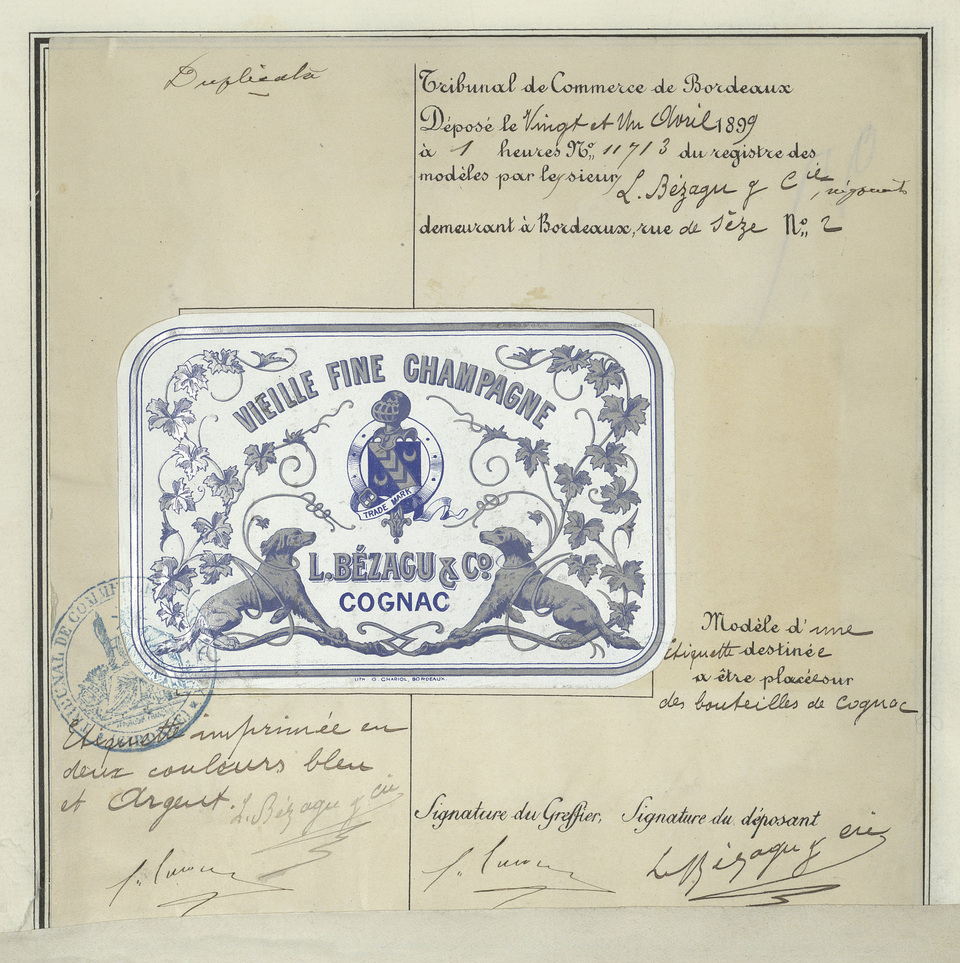 Duplicata
Tribunal de Commerce de Bordeaux
Déposé le Vingt et Un Avril 1899
à 1 heures No 11713 du registre des
modèles par le sieur L. Bézagu & Cie, négociants
demeurant à Bordeaux, rue de Sèze No 2
VIEILLE FINE CHAMPAGNE
TRADE MARK
L. BÉZAGU & Co
COGNAC
LITH. O. CHARIOL, BORDEAUX.
TRIBUNAL DE COMMERCE
Modèle d'une
étiquette destinée
a être placée sur
des bouteilles de Cognac
Etiquette imprimée en
deux couleurs bleu
et Argent. L. Bézagu & Cie
Signature du Greffier, Signature du déposant
L. Bézagu & Cie